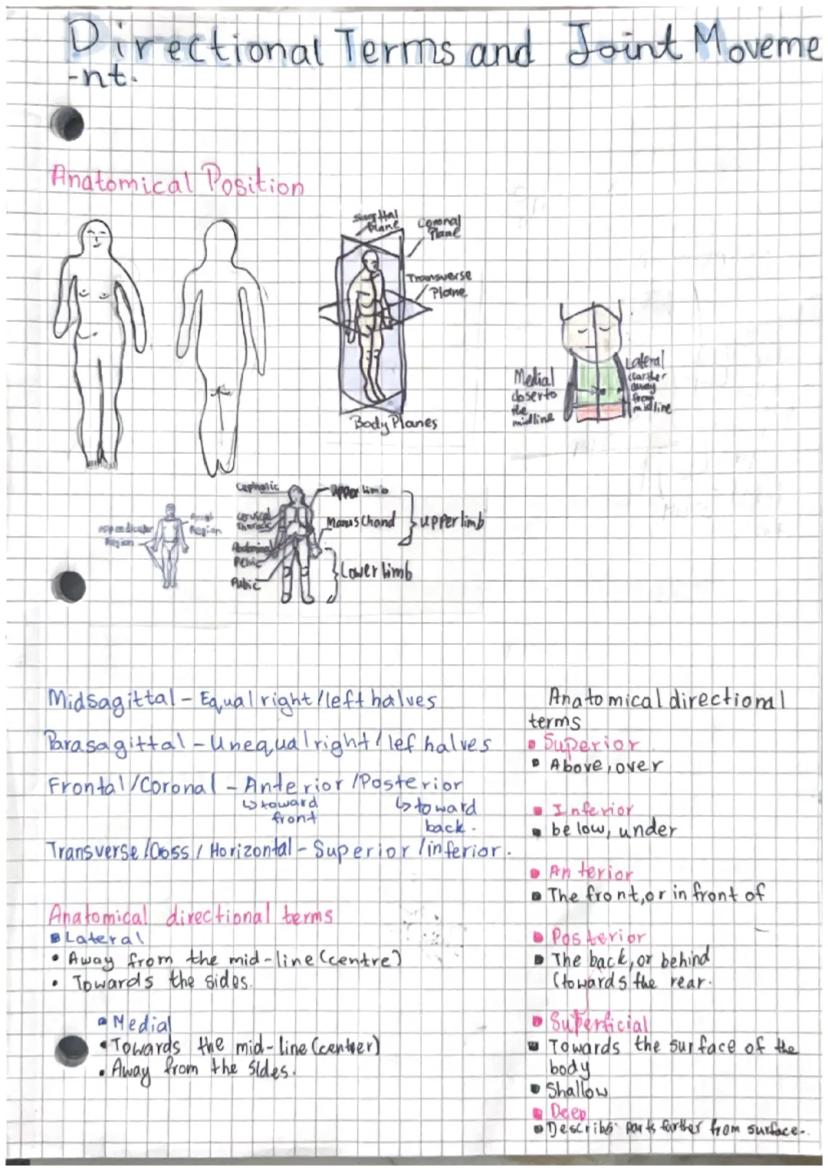 Directional Terms and Joint Moveme
-nt.
Anatomical Position
Sagittal
Plane
Coronal
Plane
Transverse
Plane
Body Planes
Medial
closer to
the
midline
Lateral
farther
away
from
midline
Appendicular
Region
Axial
Region
Cephalic
Cervical
Thoracic
Abdominal
Pelvic
Pubic
Upper limb
Manus (hand
upper limb
Lower limb
Midsagittal - Equal right/left halves
Parasagittal - Unequal right/lef halves
Frontal/Coronal - Anterior/Posterior
↳ toward
front
↳ toward
back.
Transverse/Coss/Horizontal - Superior/inferior.
Anatomical directional terms
Lateral
• Away from the mid-line (centre)
• Towards the sides.
Medial
• Towards the mid-line (center)
• Away from the sides.
Anatomical directional
terms
Superior
Above, over
Inferior
below, under
Anterior
The front, or in front of
Posterior
The back, or behind
(towards the rear.
Superficial
Towards the surface of the
body
Shallow
Deep
Describs parts farther from surface.